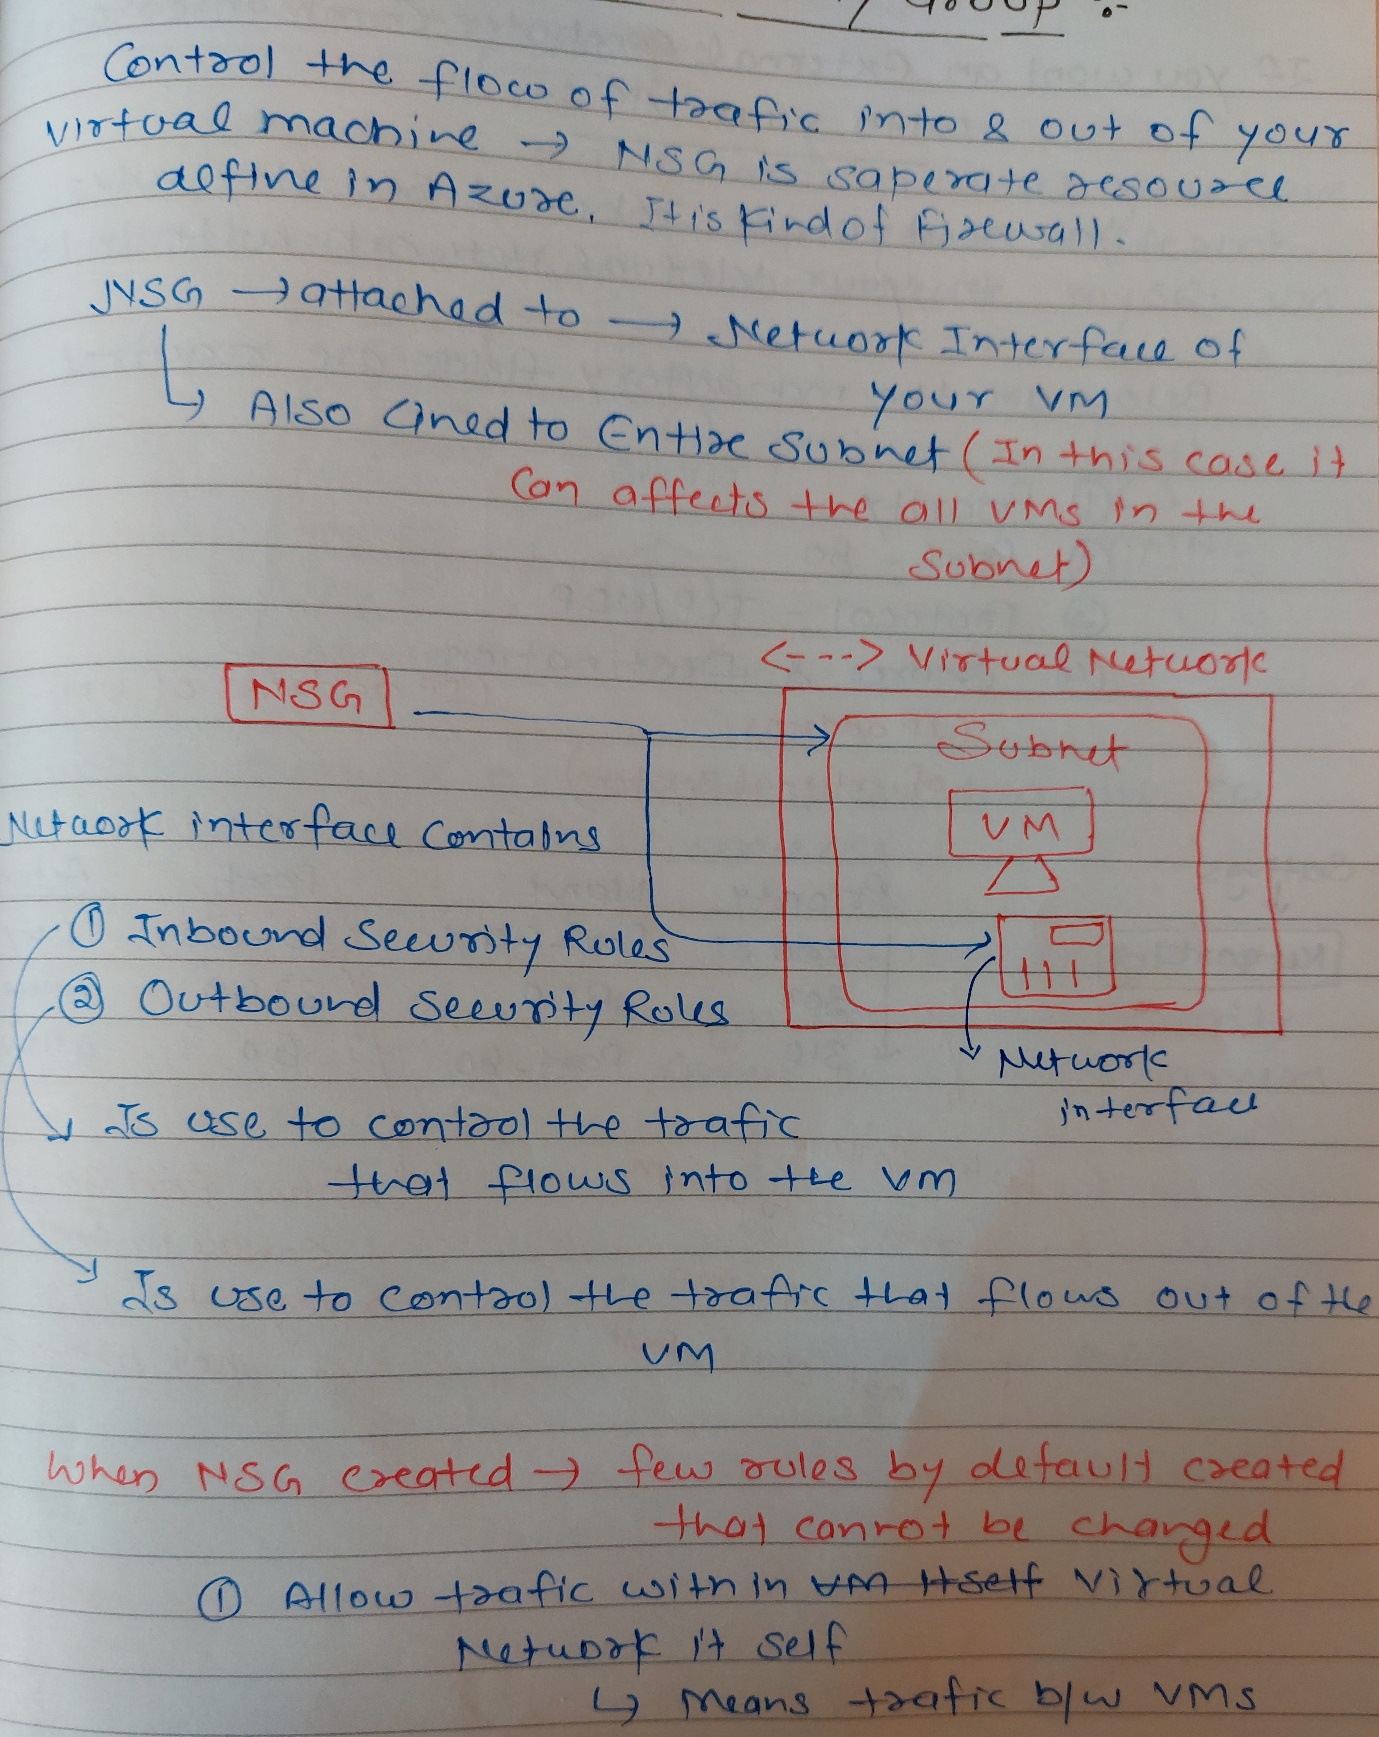 Group :-
Control the flow of trafic into & out of your
virtual machine → NSG is saperate resource
define in Azure. It is kind of Firewall.
NSG → attached to → Network Interface of
your VM
↳ Also lined to Entire Subnet (In this case it
Can affects the all VMs in the
Subnet)
<---> Virtual Network
NSG
Subnet
VM
Network interface Contains
① Inbound Security Rules
② Outbound Security Rules
Network
interface
Is use to control the trafic
that flows into the VM
Is use to control the trafic that flows out of the
VM
When NSG created → few rules by default created
that cannot be changed
① Allow trafic within VM Itself Virtual
Network it self
↳ Means trafic b/w VMs